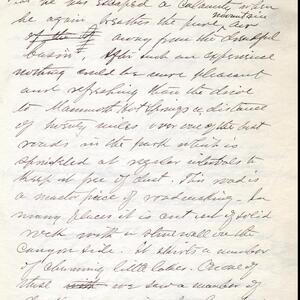 he has escaped a calamity when
he again breathes the pure mountain air
of the away from the dreadful
basin. After such an experience
nothing could be more pleasant
and refreshing than the drive
to Mammoth Hot Springs a distance
of twenty miles over one of the best
roads in the park which is
sprinkled at regular intervals to
keep it free of dust. This road is
a master piece of roadmaking. In
many places it is cut out of solid
rock with a stone wall on the
Canyon side. It skirts a number
of charming little lakes. On one of
these we saw a number of